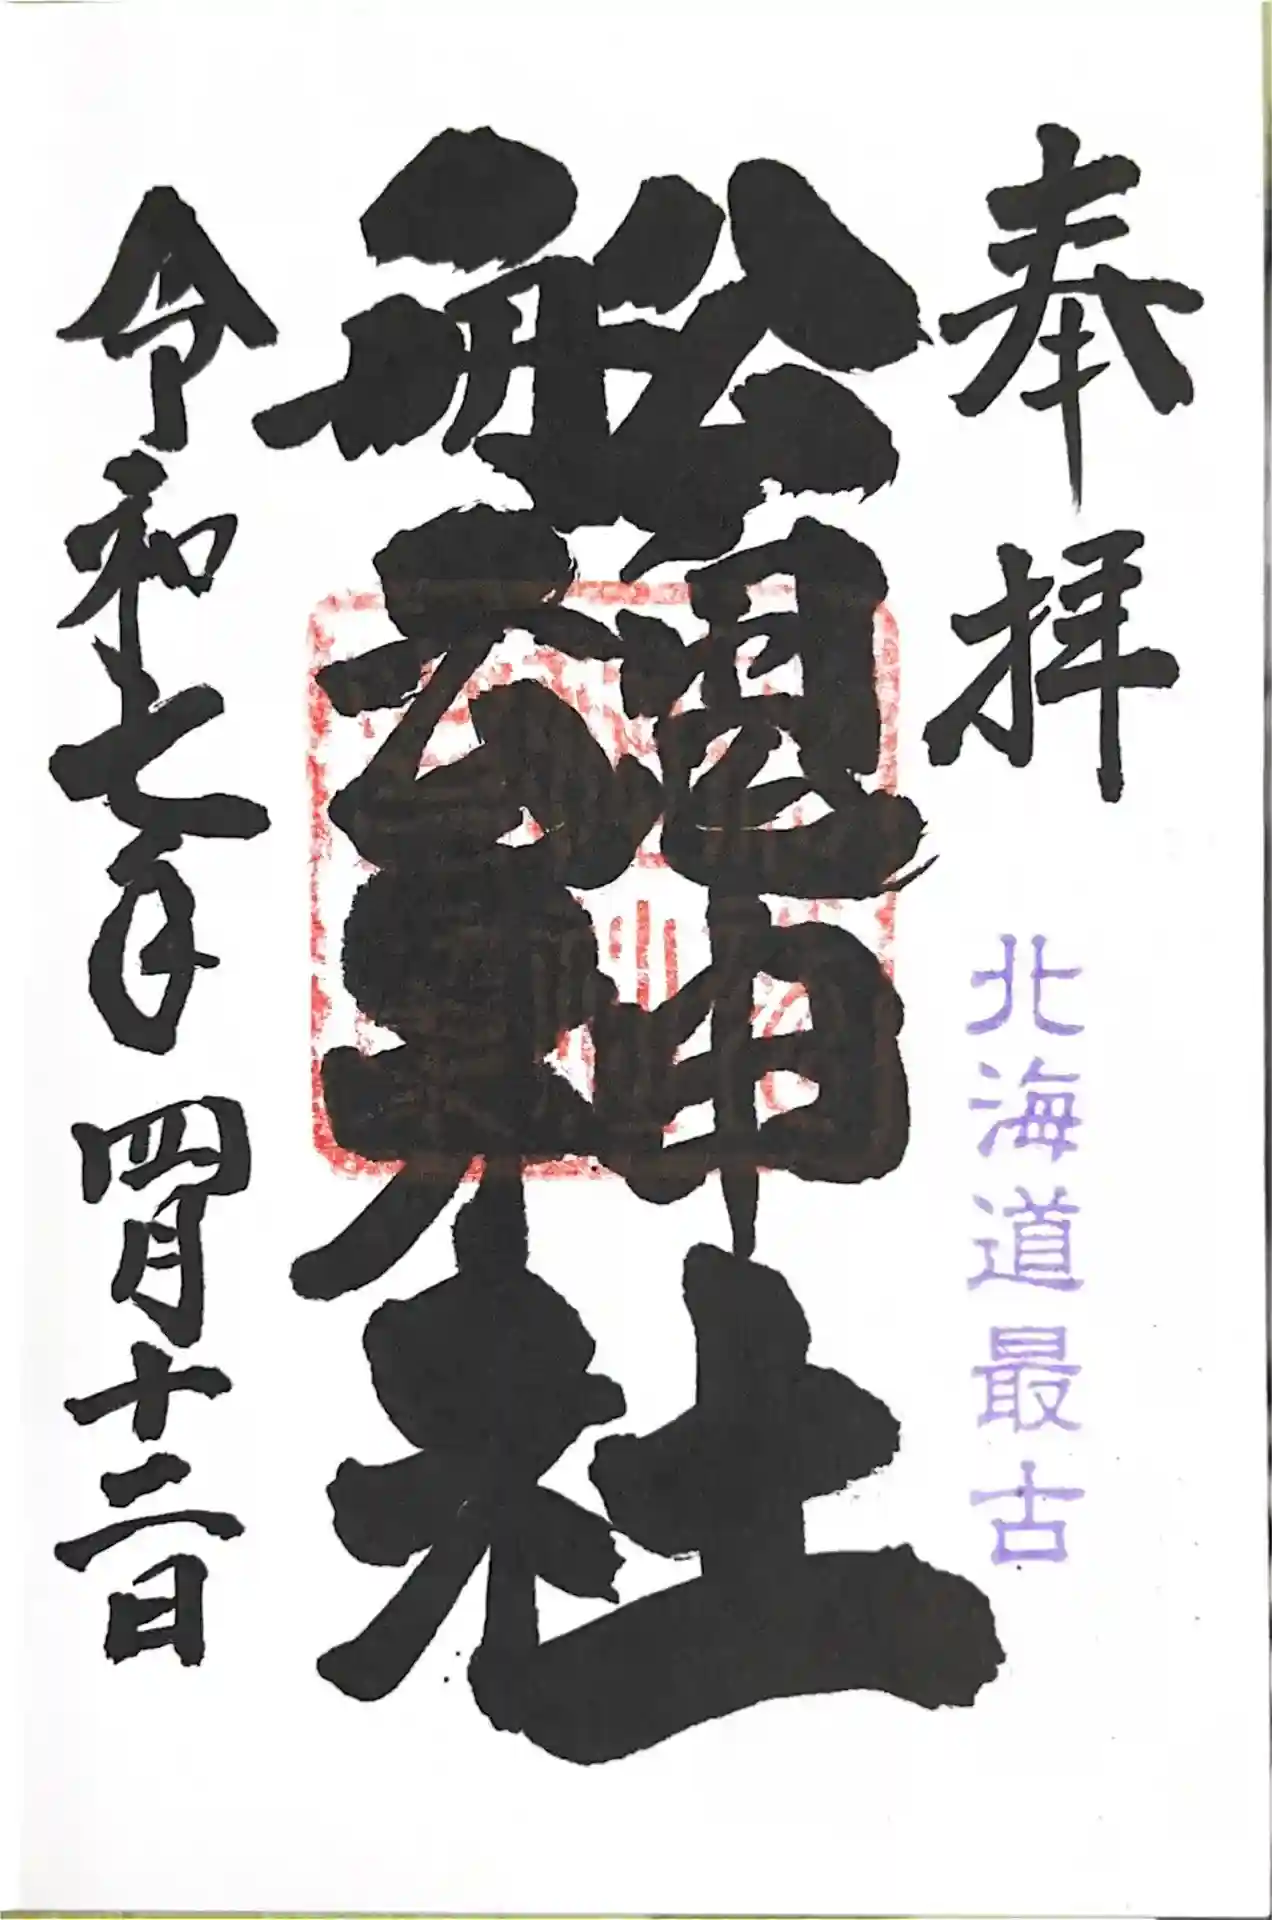 奉拝
北海道最古
舩魂神社
令和七年四月十二日